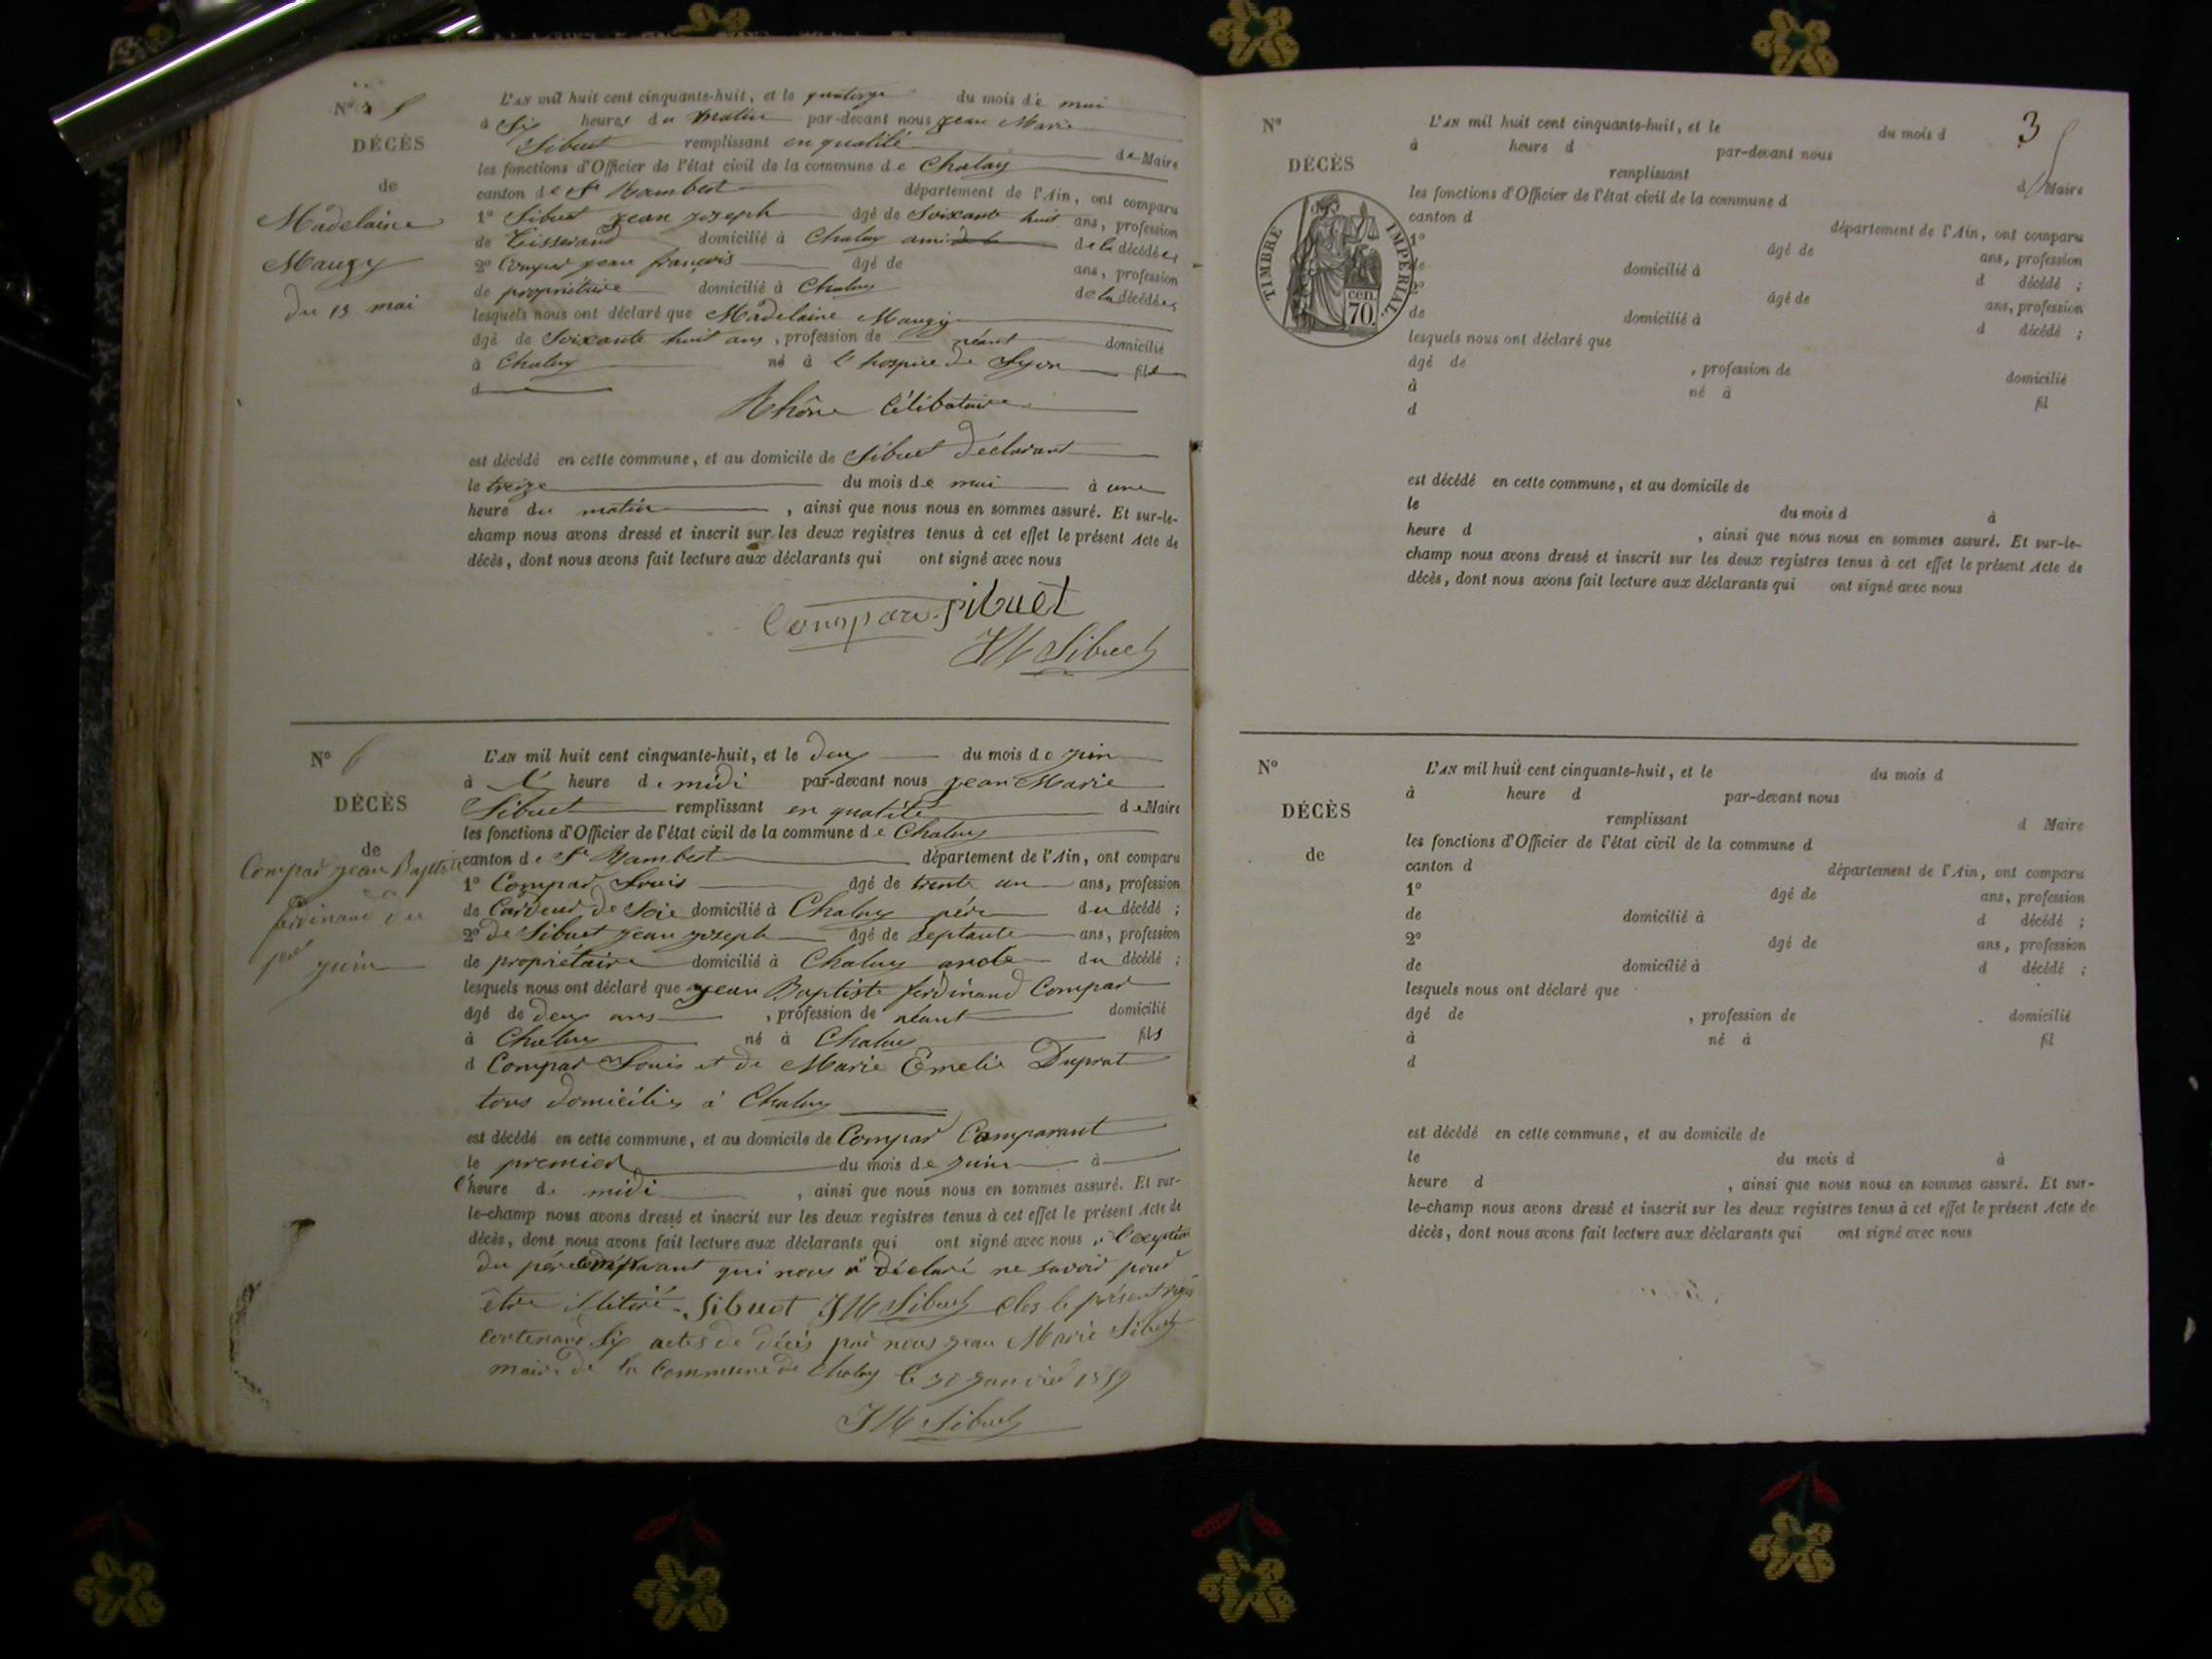 N° 5
DÉCÈS
de
Madelaine
Maugy
du 13 mai
L'AN mil huit cent cinquante-huit, et le quatorze du mois de mai
à Six heures du matin par-devant nous jean Marie
Sibuet remplissant en qualité de Maire
les fonctions d'Officier de l'état civil de la commune de Chaley
canton de St Rambert département de l'Ain, ont comparu
1° Sibuet jean joseph âgé de Soixante huit ans, profession
de Tisserand domicilié à Chaley ami de la décédée;
2° Compar jean françois âgé de ans, profession
de propriétaire domicilié à Chaley de la décédée;
lesquels nous ont déclaré que Madelaine Maugy
âgé de Soixante huit ans, profession de néant domicilié
à Chaley né à l'hospice de Lyon fil
d
Rhône Célibataire
est décédé en cette commune, et au domicile de Sibuet déclarant
le treize du mois de mai à une
heure du matin, ainsi que nous nous en sommes assuré. Et sur-le-
champ nous avons dressé et inscrit sur les deux registres tenus à cet effet le présent Acte de
décès, dont nous avons fait lecture aux déclarants qui ont signé avec nous
Compar Sibuet
JM Sibuet
N° 6
DÉCÈS
de
Compar jean Baptiste
ferdinand du
1er juin
L'AN mil huit cent cinquante-huit, et le deux du mois de juin
à l' heure de midi par-devant nous jean Marie
Sibuet remplissant en qualité de Maire
les fonctions d'Officier de l'état civil de la commune de Chaley
canton de St Rambert département de l'Ain, ont comparu
1° Compar Louis âgé de trente un ans, profession
de Cardeur de Soie domicilié à Chaley père du décédé;
2° de Sibuet jean joseph âgé de septante ans, profession
de propriétaire domicilié à Chaley du décédé;
lesquels nous ont déclaré que jean Baptiste ferdinand Compar
âgé de deux ans, profession de néant domicilié
à Chaley né à Chaley fils
d Compar Louis et de Marie Emelie Duprat
tous domiciliés à Chaley
est décédé en cette commune, et au domicile de Compar Comparant
le premier du mois de juin à
l'heure de midi, ainsi que nous nous en sommes assuré. Et sur-
le-champ nous avons dressé et inscrit sur les deux registres tenus à cet effet le présent Acte de
décès, dont nous avons fait lecture aux déclarants qui ont signé avec nous à l'exception
du père comparant qui nous a déclaré ne savoir pour
être illitéré. Sibuet JM Sibuet Clos le présent
contenant Six actes de décès par nous jean Marie Sibuet
maire de la Commune de Chaley le 30 janvier 1859
JM Sibuet
3
N°
DÉCÈS
de
TIMBRE IMPÉRIAL.
cen.
70.
L'AN mil huit cent cinquante-huit, et le du mois d
à heure d par-devant nous
remplissant d Maire
les fonctions d'Officier de l'état civil de la commune d
canton d département de l'Ain, ont comparu
1° âgé de ans, profession
de domicilié à d décédé ;
2° âgé de ans, profession
de domicilié à d décédé ;
lesquels nous ont déclaré que
âgé de , profession de domicilié
à né à fil
d
est décédé en cette commune, et au domicile de
le du mois d à
heure d , ainsi que nous nous en sommes assuré. Et sur-le-
champ nous avons dressé et inscrit sur les deux registres tenus à cet effet le présent Acte de
décès, dont nous avons fait lecture aux déclarants qui ont signé avec nous
N°
DÉCÈS
de
L'AN mil huit cent cinquante-huit, et le du mois d
à heure d par-devant nous
remplissant d Maire
les fonctions d'Officier de l'état civil de la commune d
canton d département de l'Ain, ont comparu
1° âgé de ans, profession
de domicilié à d décédé ;
2° âgé de ans, profession
de domicilié à d décédé ;
lesquels nous ont déclaré que
âgé de , profession de domicilié
à né à fil
d
est décédé en cette commune, et au domicile de
le du mois d à
heure d , ainsi que nous nous en sommes assuré. Et sur-
le-champ nous avons dressé et inscrit sur les deux registres tenus à cet effet le présent Acte de
décès, dont nous avons fait lecture aux déclarants qui ont signé avec nous